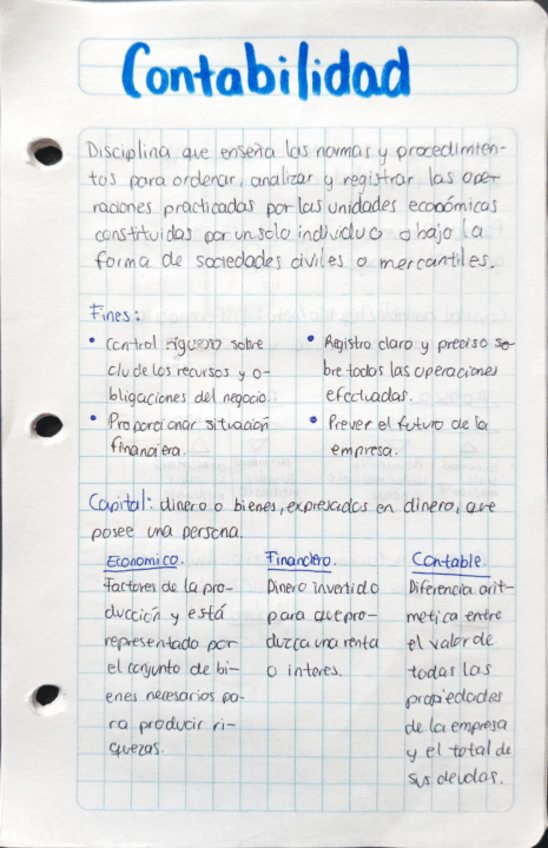 Contabilidad
Disciplina que enseña las normas y procedimien-
tos para ordenar, analizar y registrar las ope-
raciones practicadas por las unidades económicas
constituidas por un solo individuo o bajo la
forma de sociedades civiles o mercantiles.
Fines:
• Control riguroso sobre
c/u de los recursos y o-
bligaciones del negocio.
• Proporcionar situación
financiera.
• Registro claro y preciso so-
bre todas las operaciones
efectuadas.
• Prever el futuro de la
empresa.
Capital: dinero o bienes, expresados en dinero, que
posee una persona.
Economico.
Factores de la pro-
ducción y está
representado por
el conjunto de bi-
enes necesarios pa-
ra producir ri-
quezas.
Financiero.
Dinero invertido
para que pro-
duzca una renta
o interes.
Contable.
Diferencia arit-
metica entre
el valor de
todas las
propiedades
de la empresa
y el total de
sus deudas.